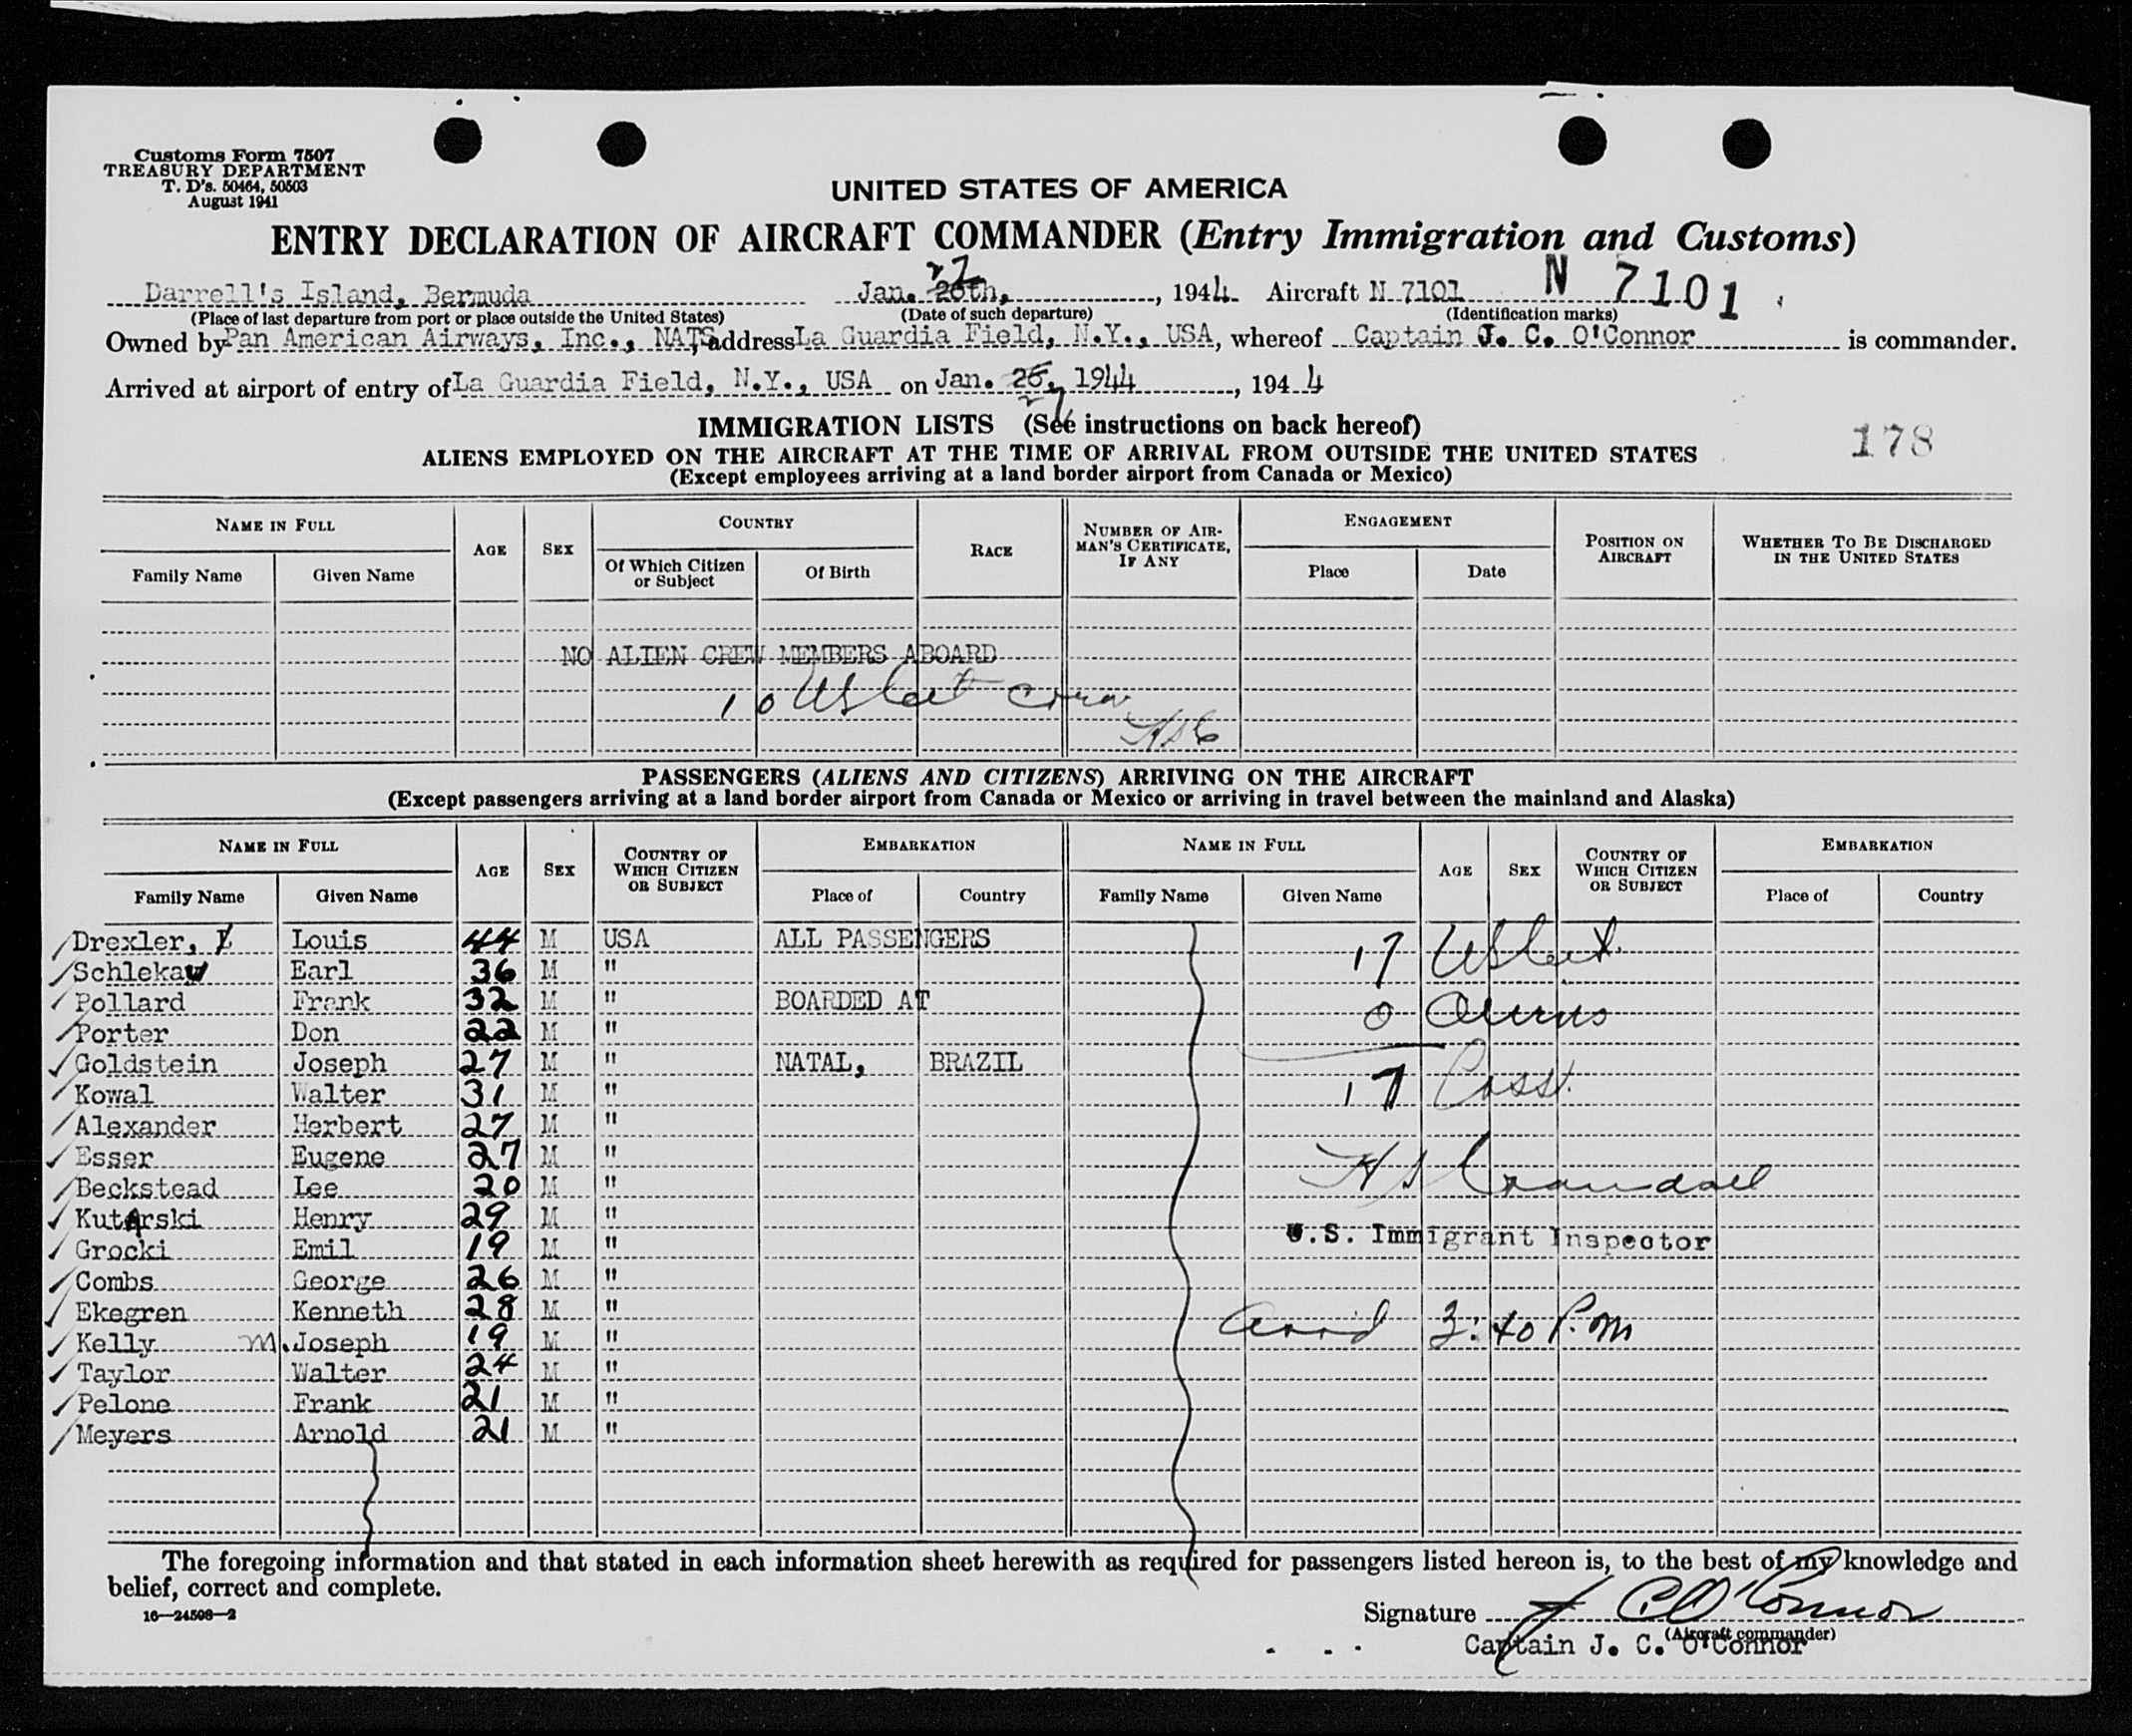 Customs Form 7507
TREASURY DEPARTMENT
T. D's. 50464, 50503
August 1941
UNITED STATES OF AMERICA
ENTRY DECLARATION OF AIRCRAFT COMMANDER (Entry Immigration and Customs)
Darrell's Island, Bermuda Jan. 26th, 27 , 1944 Aircraft N 7101 N 7101
(Place of last departure from port or place outside the United States) (Date of such departure) (Identification marks)
Owned by Pan American Airways, Inc., NATS address La Guardia Field, N.Y., USA, whereof Captain J. C. O'Connor is commander.
Arrived at airport of entry of La Guardia Field, N.Y., USA on Jan. 26, 27 1944, 1944
IMMIGRATION LISTS (See instructions on back hereof)
178
ALIENS EMPLOYED ON THE AIRCRAFT AT THE TIME OF ARRIVAL FROM OUTSIDE THE UNITED STATES
(Except employees arriving at a land border airport from Canada or Mexico)
NAME IN FULL AGE SEX COUNTRY RACE NUMBER OF AIRMAN'S CERTIFICATE, IF ANY ENGAGEMENT POSITION ON AIRCRAFT WHETHER TO BE DISCHARGED IN THE UNITED STATES
Family Name Given Name Of Which Citizen or Subject Of Birth Place Date
NO ALIEN CREW MEMBERS ABOARD
10 US Cit crew
HSC
PASSENGERS (ALIENS AND CITIZENS) ARRIVING ON THE AIRCRAFT
(Except passengers arriving at a land border airport from Canada or Mexico or arriving in travel between the mainland and Alaska)
NAME IN FULL AGE SEX COUNTRY OF WHICH CITIZEN OR SUBJECT EMBARKATION NAME IN FULL AGE SEX COUNTRY OF WHICH CITIZEN OR SUBJECT EMBARKATION
Family Name Given Name Place of Country Family Name Given Name Place of Country
Drexler, Louis 44 M USA ALL PASSENGERS 17 US Cit.
Schlekaw Earl 36 M "
Pollard Frank 32 M " BOARDED AT 0 Aliens
Porter Don 22 M "
Goldstein Joseph 27 M " NATAL, BRAZIL
Kowal Walter 31 M " 17 Pass.
Alexander Herbert 27 M "
Esser Eugene 27 M "
Beckstead Lee 20 M " H S Crandall
Kutarski Henry 29 M "
Grocki Emil 19 M " U.S. Immigrant Inspector
Combs George 26 M "
Ekegren Kenneth 28 M "
Kelly M. Joseph 19 M " Arrd 3:40 P.m
Taylor Walter 24 M "
Pelone Frank 21 M "
Meyers Arnold 21 M "
The foregoing information and that stated in each information sheet herewith as required for passengers listed hereon is, to the best of my knowledge and
belief, correct and complete.
16—24508—2
Signature J C O'Connor
(Aircraft commander)
Captain J. C. O'Connor